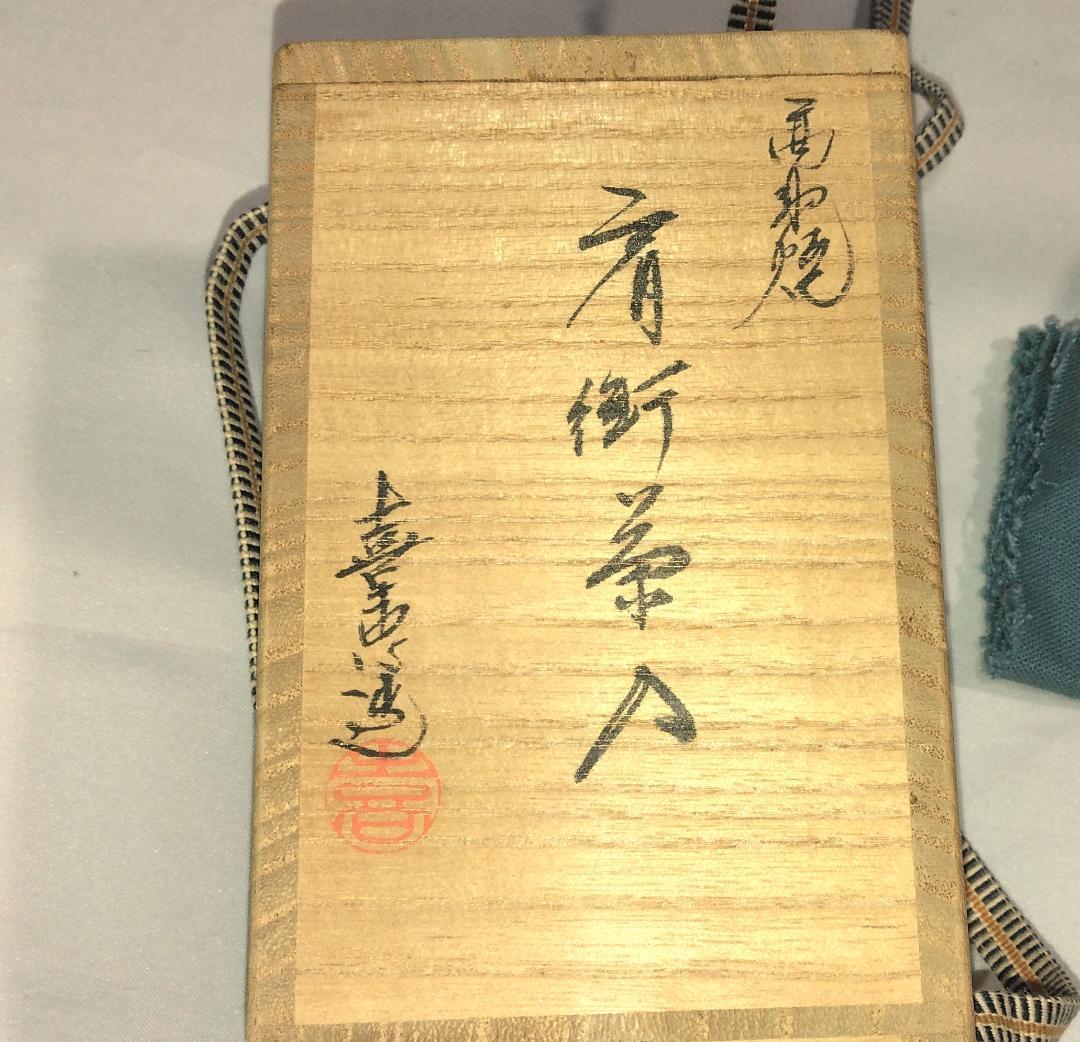 高取焼
肩衝茶入
喜斎造
喜